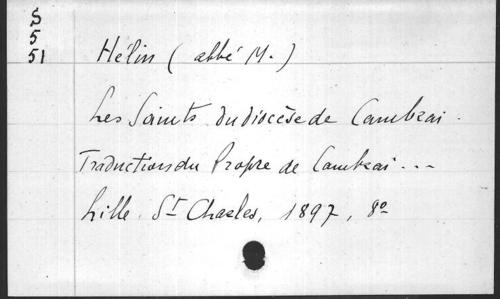 S
5
51
Hélin (abbé M.)
Les Saints du diocèse de Cambrai.
Traduction du Propre de Cambrai...
Lille. St Charles, 1897, 8º